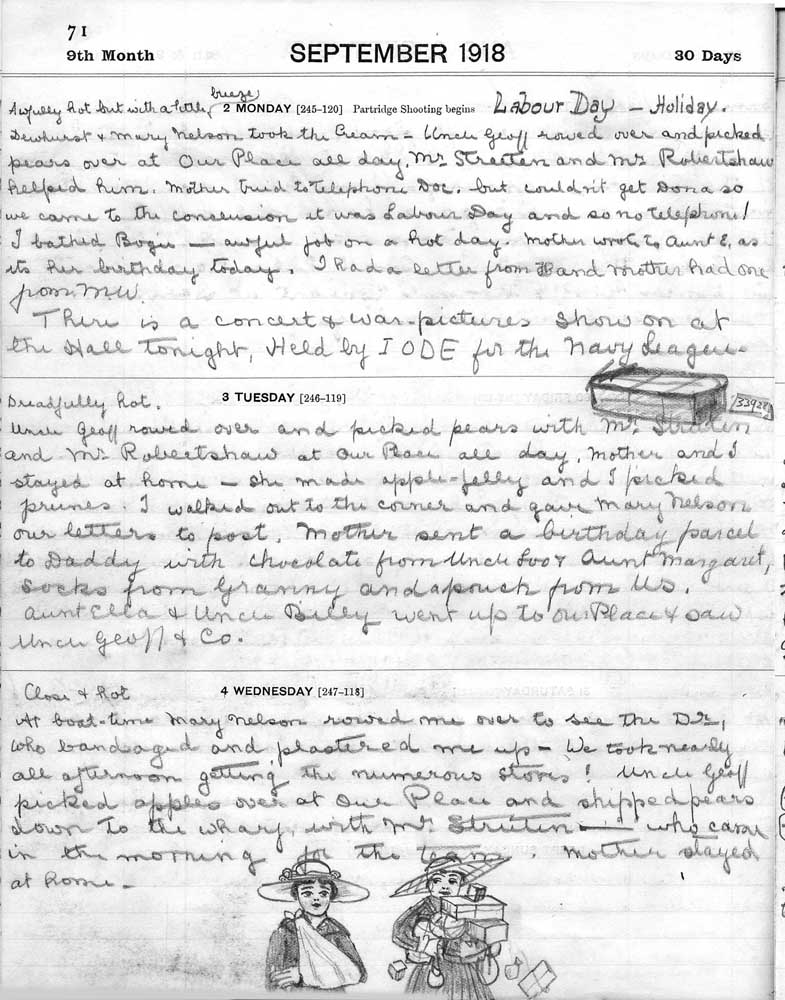 71
9th Month SEPTEMBER 1918 30 Days
Awfully hot but with a little breeze 2 MONDAY [245-120] Partridge Shooting begins Labour Day – Holiday.
Dewhurst & Mary Nelson took the Cream – Uncle Geoff rowed over and picked
pears over at Our Place all day, Mr. Streeten and Mr Robertshaw
helped him. Mother tried to telephone Doc. but couldn't get Dona so
we came to the conclusion it was Labour Day and so no telephone!
I bathed Bogie – awful job on a hot day. Mother wrote to Aunt E, as
its her birthday today. I had a letter from and Mother had one
from MW.
There is a concert & war-pictures show on at
the Hall tonight, Held by I O D E for the Navy League.
3 TUESDAY [246-119]
Dreadfully hot. 33928
Uncle Geoff rowed over and picked pears with Mr. Streeten
and Mr. Robertshaw at Our Place all day. Mother and I
stayed at home – she made apple-jelly and I picked
prunes. I walked out to the corner and gave Mary Nelson
our letters to post. Mother sent a birthday parcel
to Daddy with chocolate from Uncle & Aunt Margaret,
socks from Granny and a pouch from Us.
Aunt Ella & Uncle Billy went up to our Place & saw
Uncle Geoff & Co.
Close & hot 4 WEDNESDAY [247-118]
At boat-time Mary Nelson rowed me over to see the Dr.,
who bandaged and plastered me up – We took nearly
all afternoon getting the numerous stores! Uncle Geoff
picked apples over at Our Place and shipped pears
down to the wharf, with Mr. Streeten – who came
in the morning for the team. Mother stayed
at home –